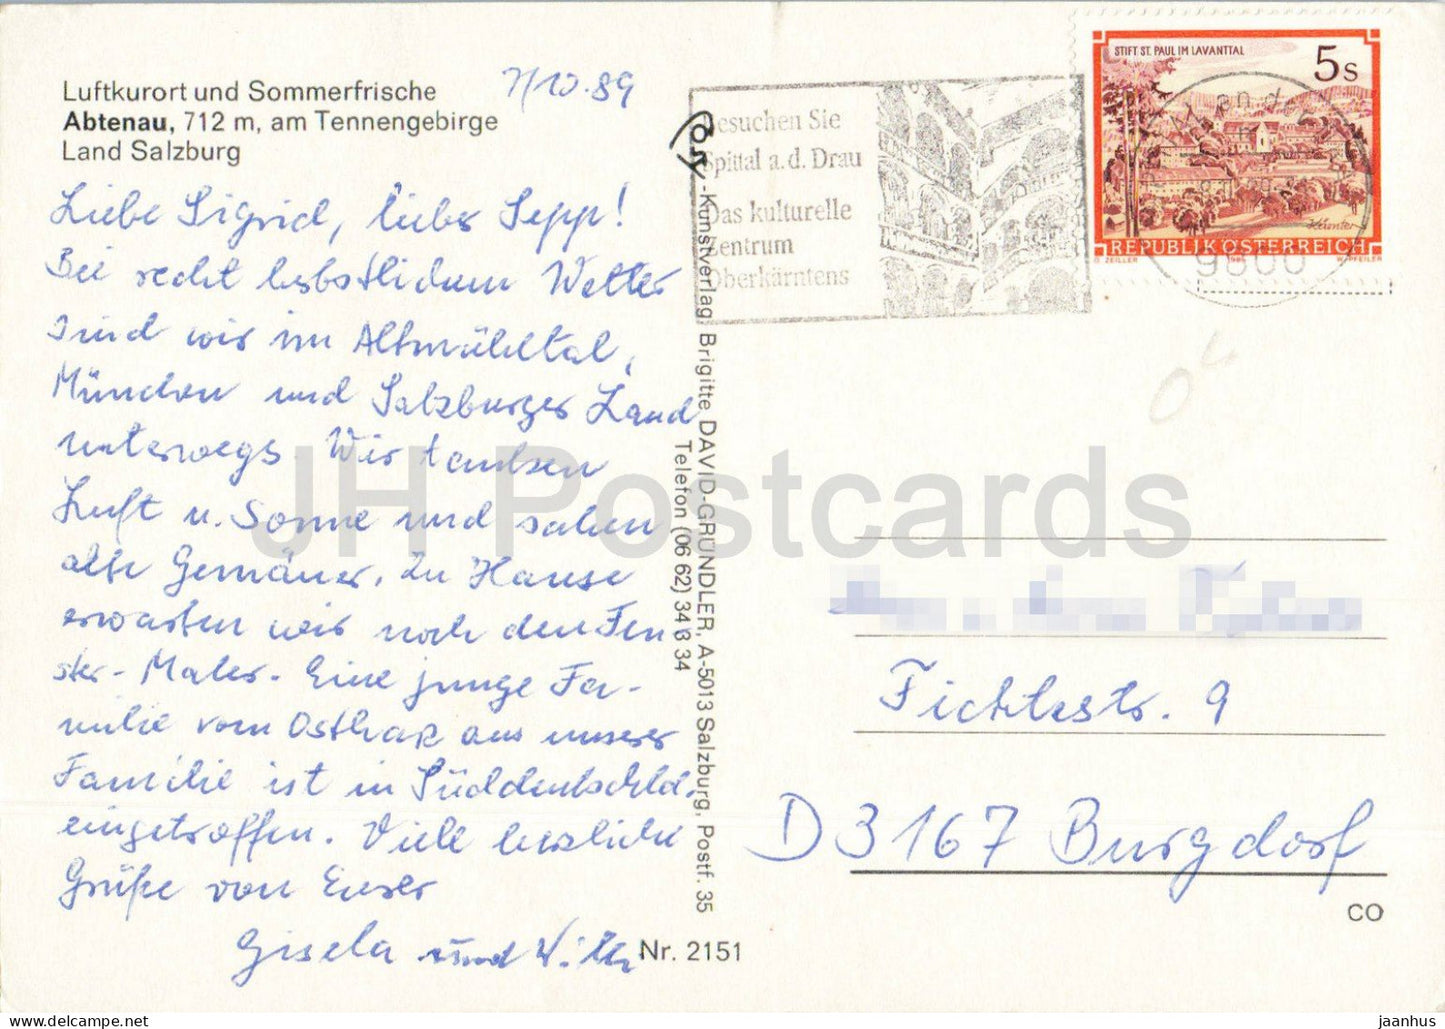 Luftkurort und Sommerfrische
Abtenau, 712 m, am Tennengebirge
Land Salzburg
7/10.89
Liebe Sigrid, lieber Sepp!
Bei recht herbstlichem Wetter
sind wir im Altmühltal,
München und Salzburger Land
unterwegs. Wir tanken
Luft u. Sonne und sahen
alte Gemäuer. Zu Hause
erwarten wir noch den Fen
ster-Maler. Eine junge Fa-
milie vom Ostharz aus unserer
Familie ist in Süddeutschld.
eingetroffen. Viele herzliche
Grüße von Eurer
Gisela und Willi
Nr. 2151
-Kunstverlag, Brigitte DAVID-GRÜNDLER, A-5013 Salzburg, Postf. 35
Telefon (06 62) 34 3 34
Besuchen Sie
Spittal a.d. Drau
Das kulturelle
Zentrum
Oberkärntens
STIFT ST. PAUL IM LAVANTTAL
5s
Kärnten
REPUBLIK ÖSTERREICH
O. ZEILLER 1985 W. PFEILER
9800
Fichtestr. 9
D 3167 Burgdorf
CO
JH Postcards
jaanhus